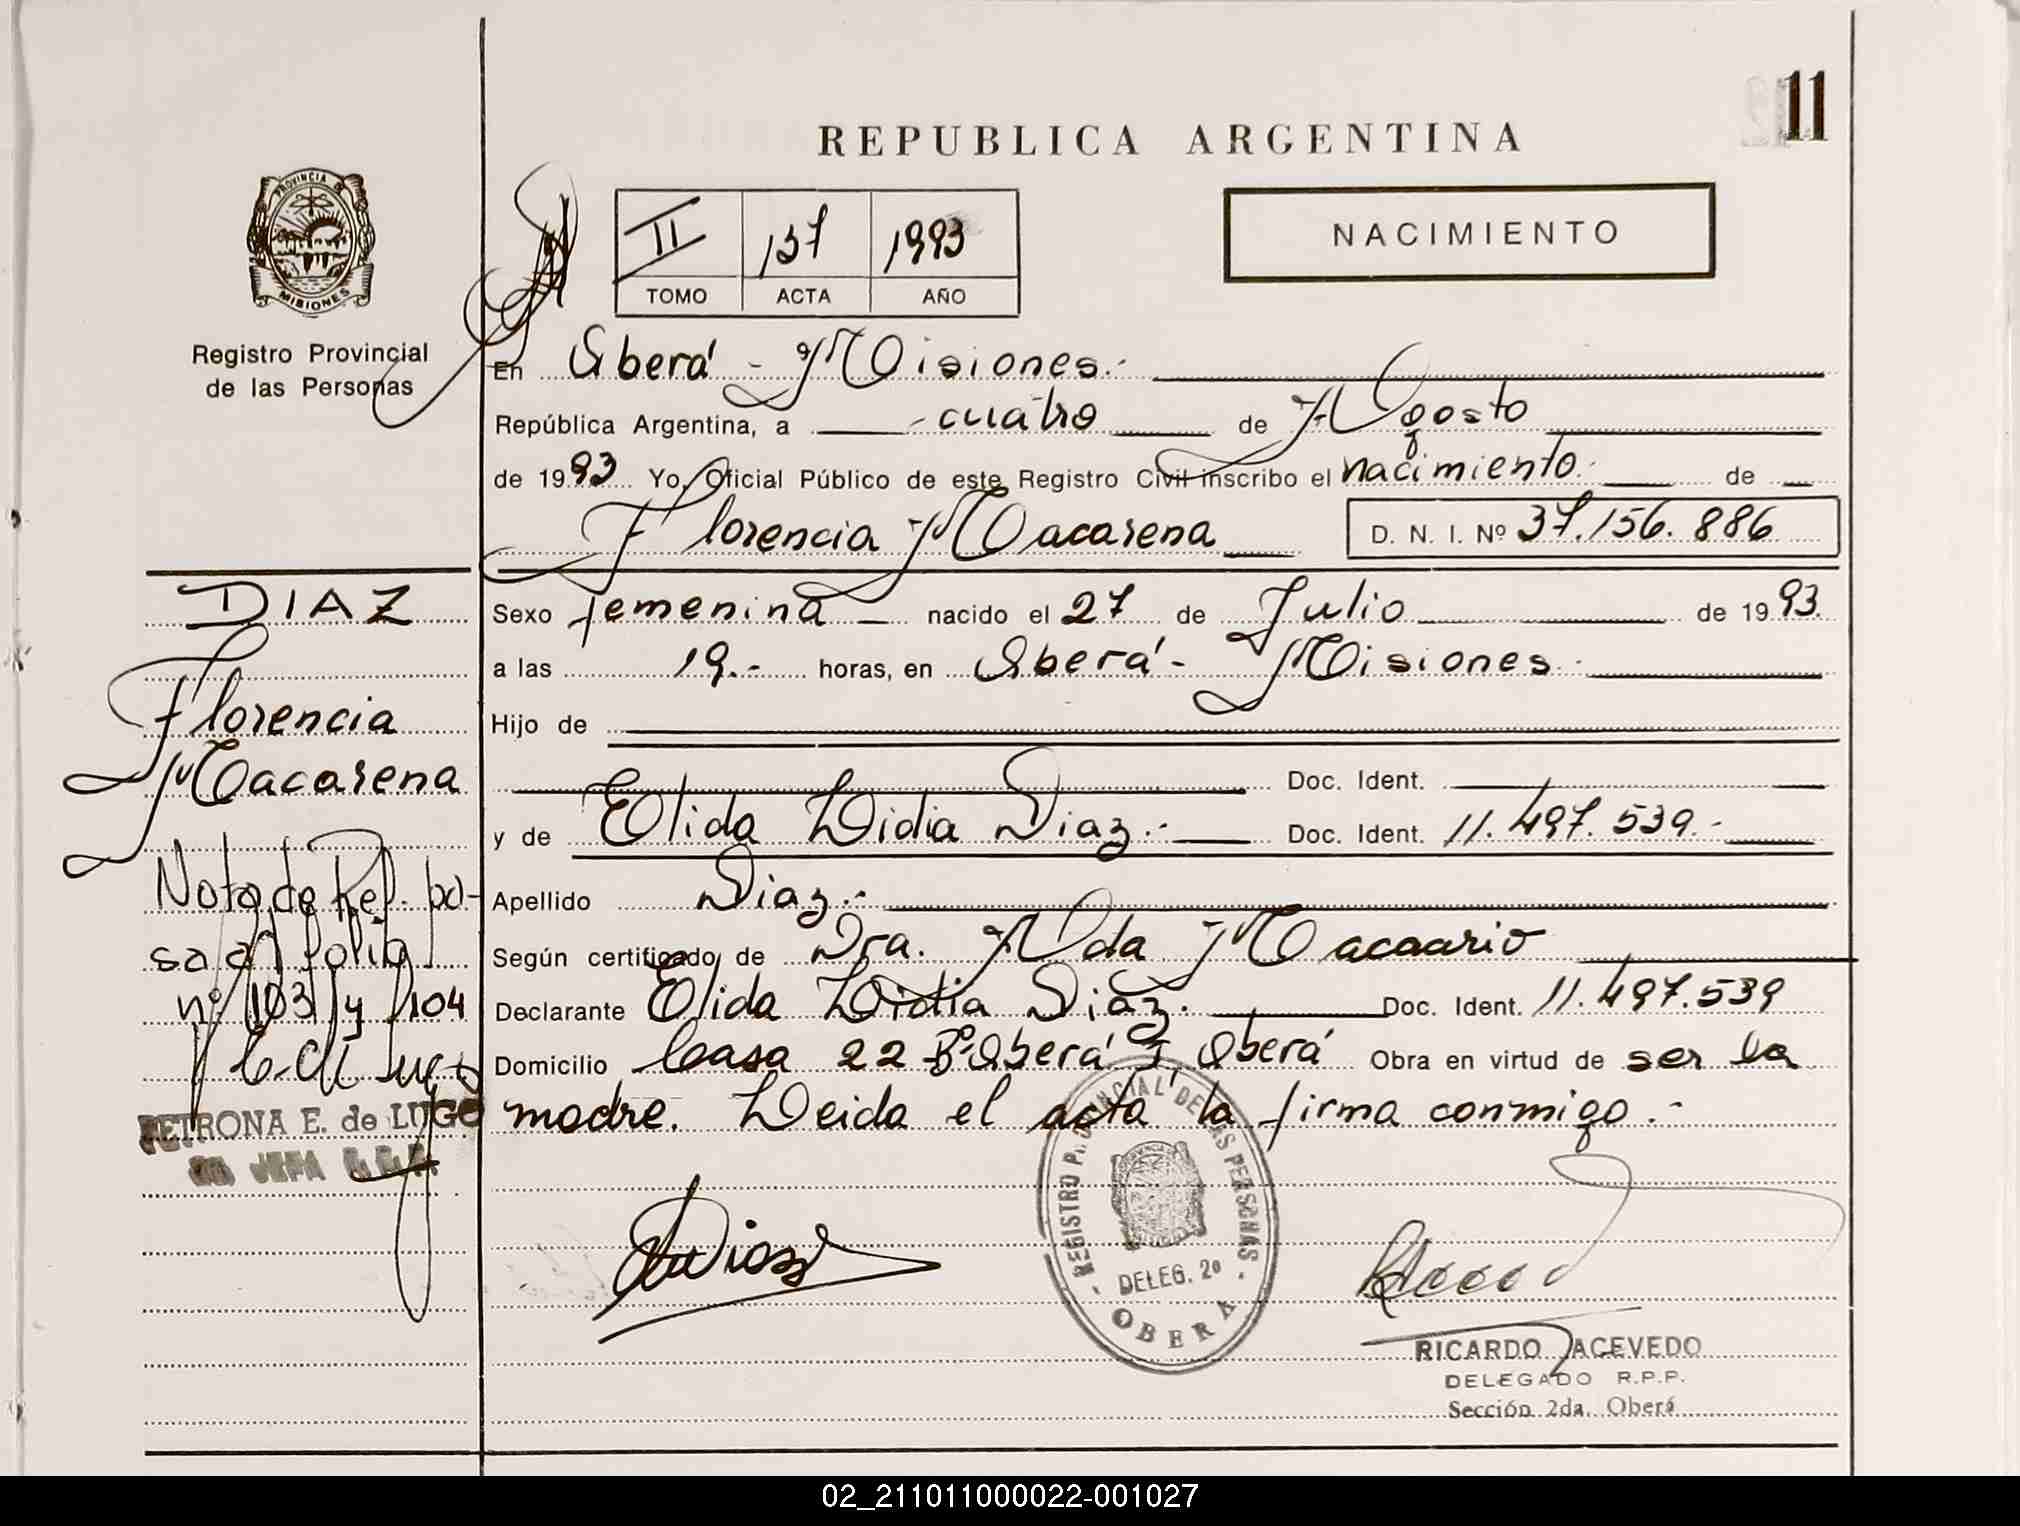 11
REPUBLICA ARGENTINA
PROVINCIA DE
MISIONES
Registro Provincial
de las Personas
II 137 1993
TOMO ACTA AÑO
NACIMIENTO
En Oberá - Misiones.-
República Argentina, a cuatro de Agosto
de 1993 Yo, Oficial Público de este Registro Civil inscribo el nacimiento. de
Florencia Macarena
D. N. I. Nº 37.156.886
Sexo femenina nacido el 27 de Julio de 1993.
a las 19.- horas, en Oberá - Misiones.
Hijo de
Doc. Ident.
y de Elida Lidia Diaz.- Doc. Ident. 11.497.539.-
Apellido Diaz.-
Según certificado de Dra. Alda Macaario
Declarante Elida Lidia Diaz. Doc. Ident. 11.497.539
Domicilio Casa 22 Bº Oberá I Oberá Obra en virtud de ser la
madre. Leida el acta la firma conmigo.-
DIAZ
Florencia
Macarena
Nota de Ref. pa-
sa al folio
nº 103 y 104
PETRONA E. de LUGO
JEFA
REGISTRO PROVINCIAL DE LAS PERSONAS
DELEG. 2º
OBERA
RICARDO ACEVEDO
DELEGADO R.P.P.
Sección 2da. Oberá
02_211011000022-001027